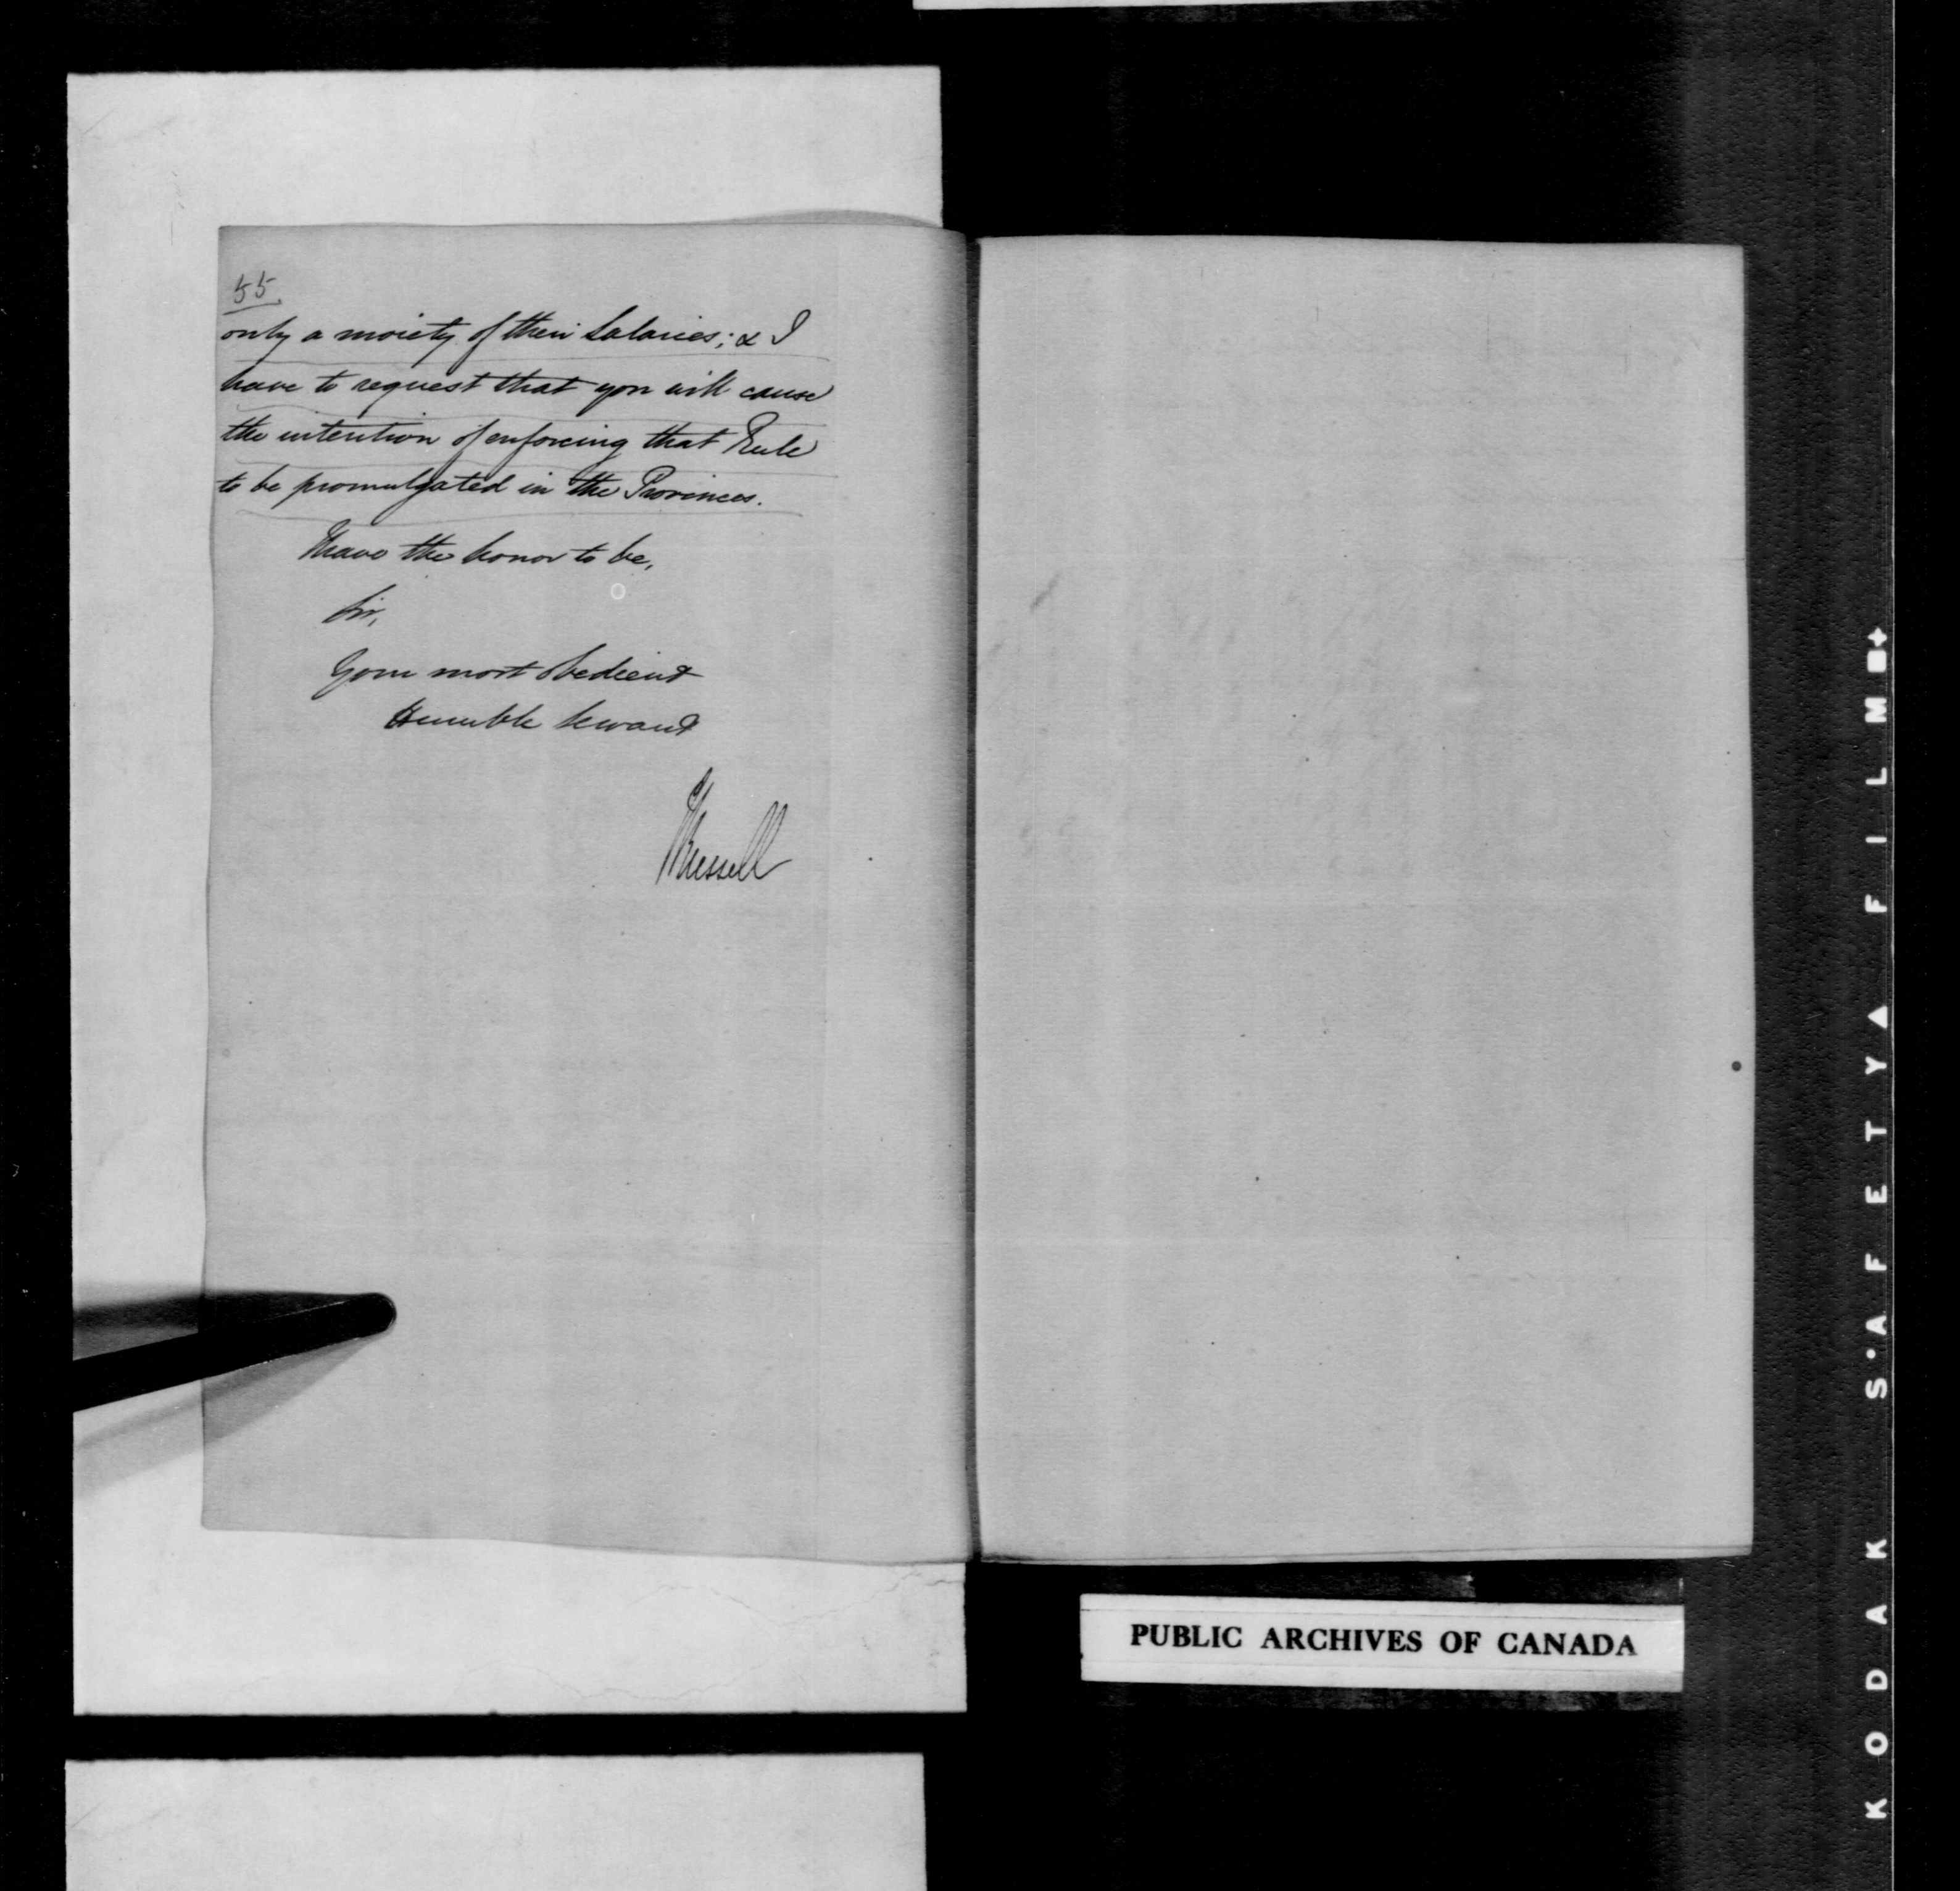 55.
only a moiety of their Salaries; & I
have to request that you will cause
the intention of enforcing that Rule
to be promulgated in the Provinces.
I have the honor to be,
Sir,
Your most obedient
Humble Servant
J Russell
PUBLIC ARCHIVES OF CANADA
KODAK S·AFETY▲ FILM